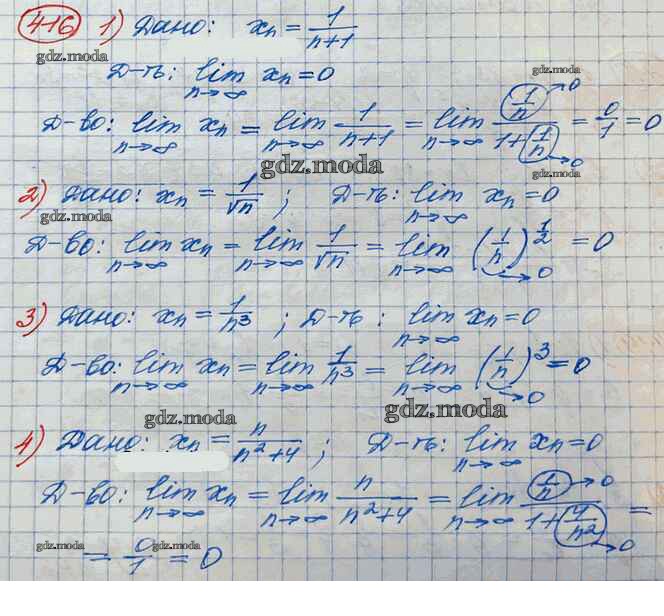 416 1) Дано: xₙ = 1/(n+1)
gdz.moda
Д-ть: lim xₙ = 0
n→∞
gdz.moda
Д-во: lim xₙ = lim 1/(n+1) = lim (1/n)/(1+1/n) = 0/1 = 0
n→∞ n→∞ n→∞ →0 →0
gdz.moda gdz.moda
2) Дано: xₙ = 1/√n ; Д-ть: lim xₙ = 0
gdz.moda n→∞
Д-во: lim xₙ = lim 1/√n = lim (1/n)^(1/2) = 0
n→∞ n→∞ n→∞ →0
3) Дано: xₙ = 1/n³ ; Д-ть: lim xₙ = 0
n→∞
Д-во: lim xₙ = lim 1/n³ = lim (1/n)³ = 0
n→∞ n→∞ n→∞ →0
gdz.moda gdz.moda
4) Дано: xₙ = n/(n²+4) ; Д-ть: lim xₙ = 0
n→∞
Д-во: lim xₙ = lim n/(n²+4) = lim (1/n)/(1+4/n²) =
n→∞ n→∞ n→∞ →0 →0
gdz.moda gdz.moda
= 0/1 = 0
gdz.moda